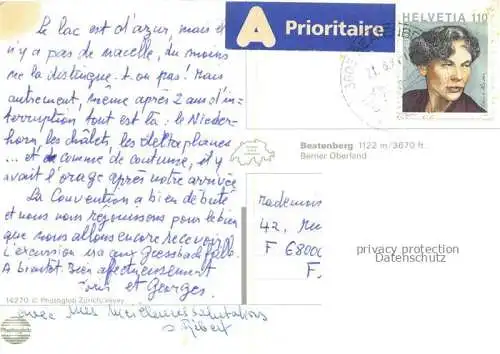 Le lac est d'azur, mais il
n'y a pas de nacelle, du moins
ne la distingue-t-on pas! Mais
autrement, même après 2 ans d'in-
terruption tout est là: le Nieder-
horn, les châlets, les deltaplanes
... et comme de coutume, il y
avait l'orage après notre arrivée
La Convention a bien débuté
et nous nous réjouissons pour le bien
que nous allons encore recevoir.
L'excursion ira aux Giessbachfälle.
A bientôt Bien affectueusement
et Georges.
avec mes meilleures salutations
A Prioritaire
HELVETIA 110
Beatenberg 1122 m/3670 ft.
Berner Oberland
42,
F 68000
F.
privacy protection
Datenschutz
14270 © Photoglob Zürich/Vevey
Photoglob